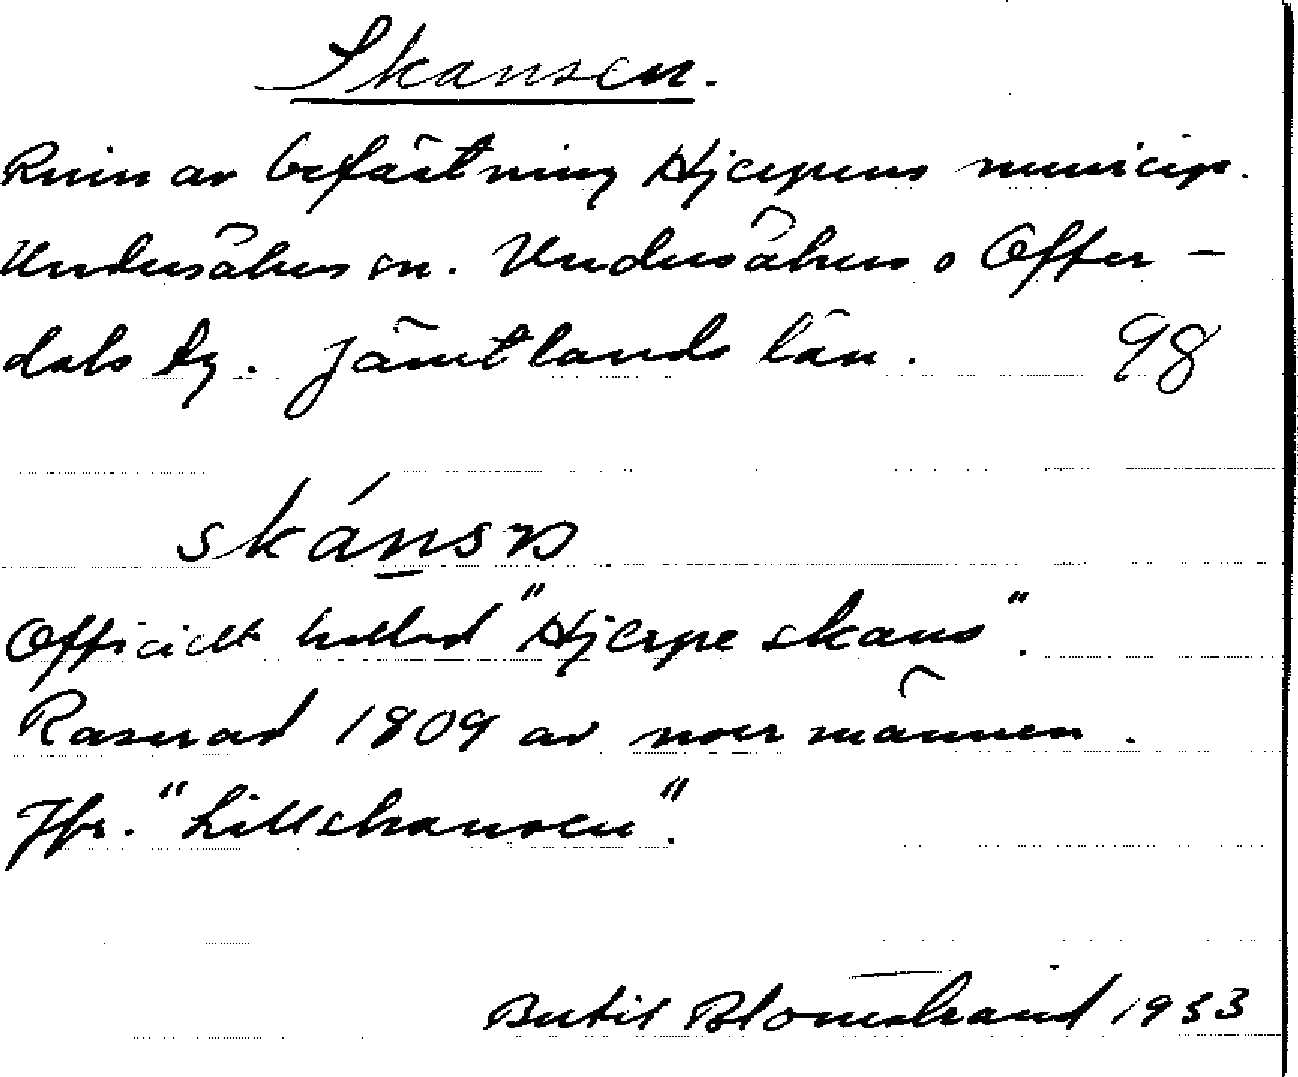 Skansen.
Ruin av befästning Hjerpens municip.
Undersåkers sn. Undersåkers o Offer-
dals tg. Jämtlands län. 98
skánsn
Officiellt kallad "Hjerpe skans".
Raserad 1809 av norrmännen.
Jfr. "Lillskansen".
Bertil Blomstrand 1933